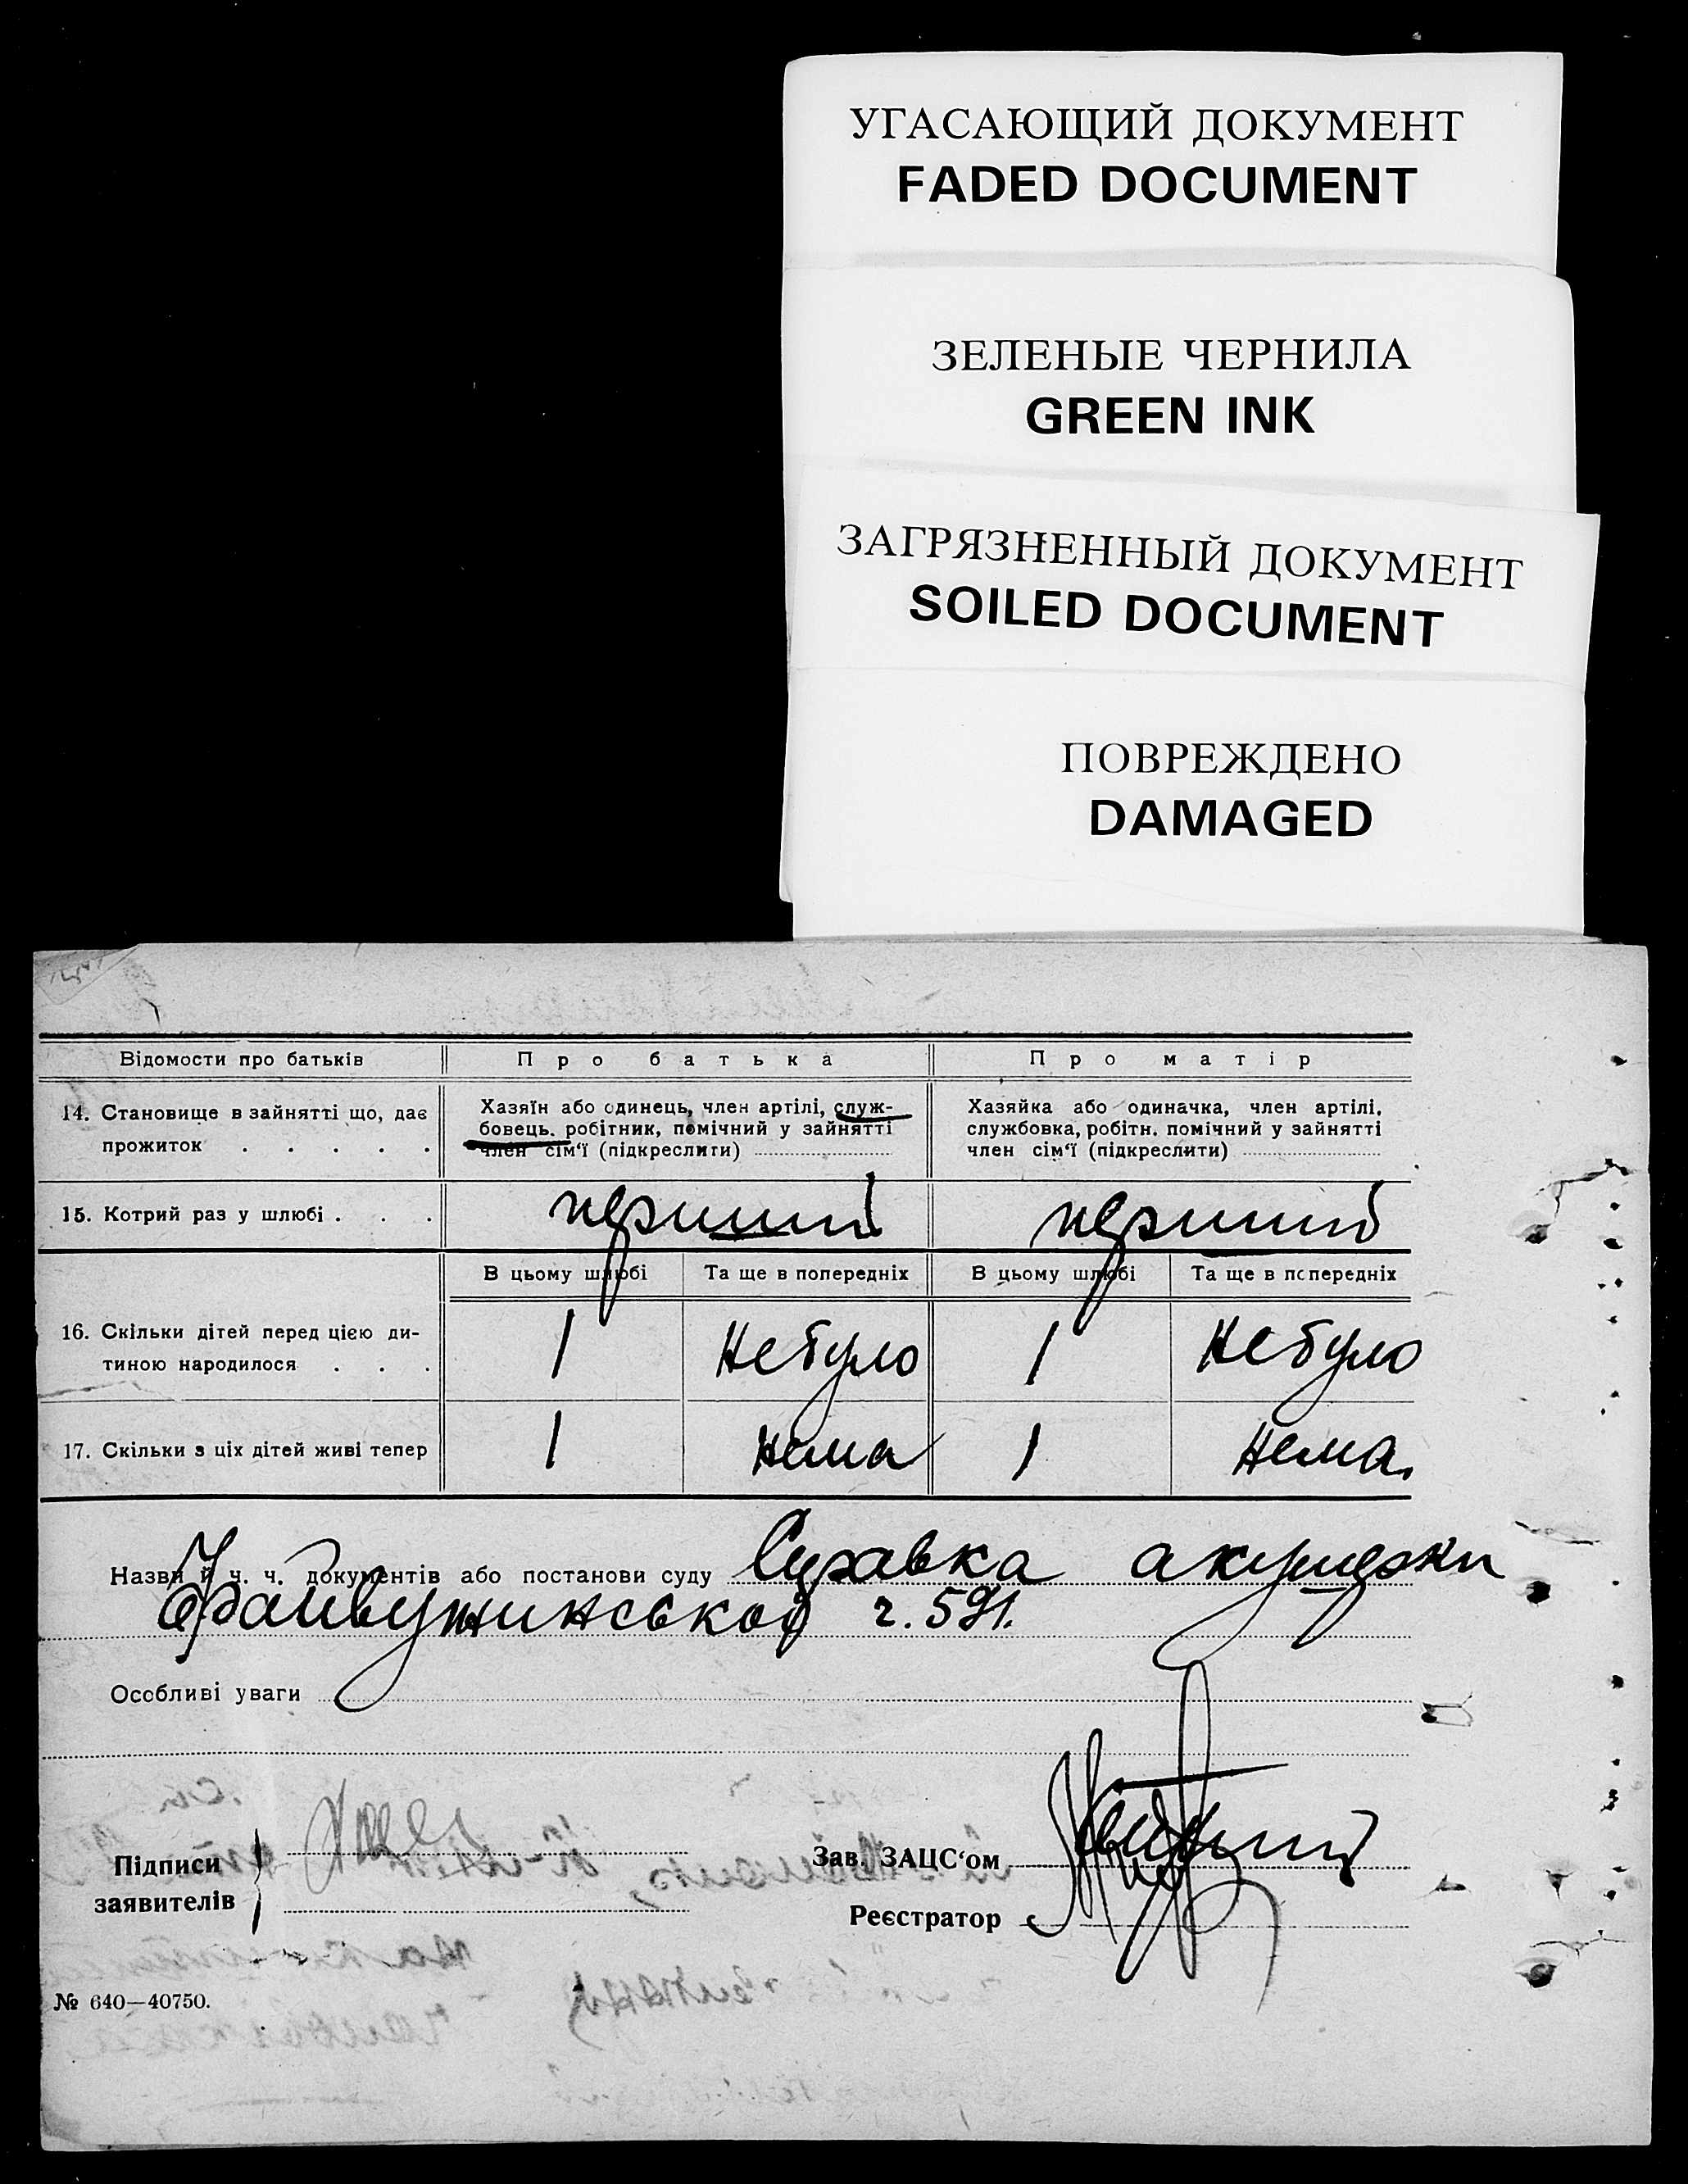 УГАСАЮЩИЙ ДОКУМЕНТ
FADED DOCUMENT
ЗЕЛЕНЫЕ ЧЕРНИЛА
GREEN INK
ЗАГРЯЗНЕННЫЙ ДОКУМЕНТ
SOILED DOCUMENT
ПОВРЕЖДЕНО
DAMAGED
Відомости про батьків Про батька Про матір
14. Становище в зайнятті що, дає прожиток . . . . .
Хазяїн або одинець, член артілі, служ-
бовець, робітник, помічний у зайнятті
член сім‘ї (підкреслити)
Хазяйка або одиначка, член артілі,
службовка, робітн. помічний у зайнятті
член сім‘ї (підкреслити)
15. Котрий раз у шлюбі . . . перший перший
В цьому шлюбі Та ще в попередніх В цьому шлюбі Та ще в попередніх
16. Скільки дітей перед цією ди-
тиною народилося . . . 1 Небуло 1 Небуло
17. Скільки з ціх дітей живі тепер 1 Нема 1 Нема.
Назви й ч. ч. документів або постанови суду Справка акушерки
ч. 591.
Особливі уваги
Підписи
заявителів
Зав. ЗАЦС‘ом
Реєстратор
№ 640—40750.